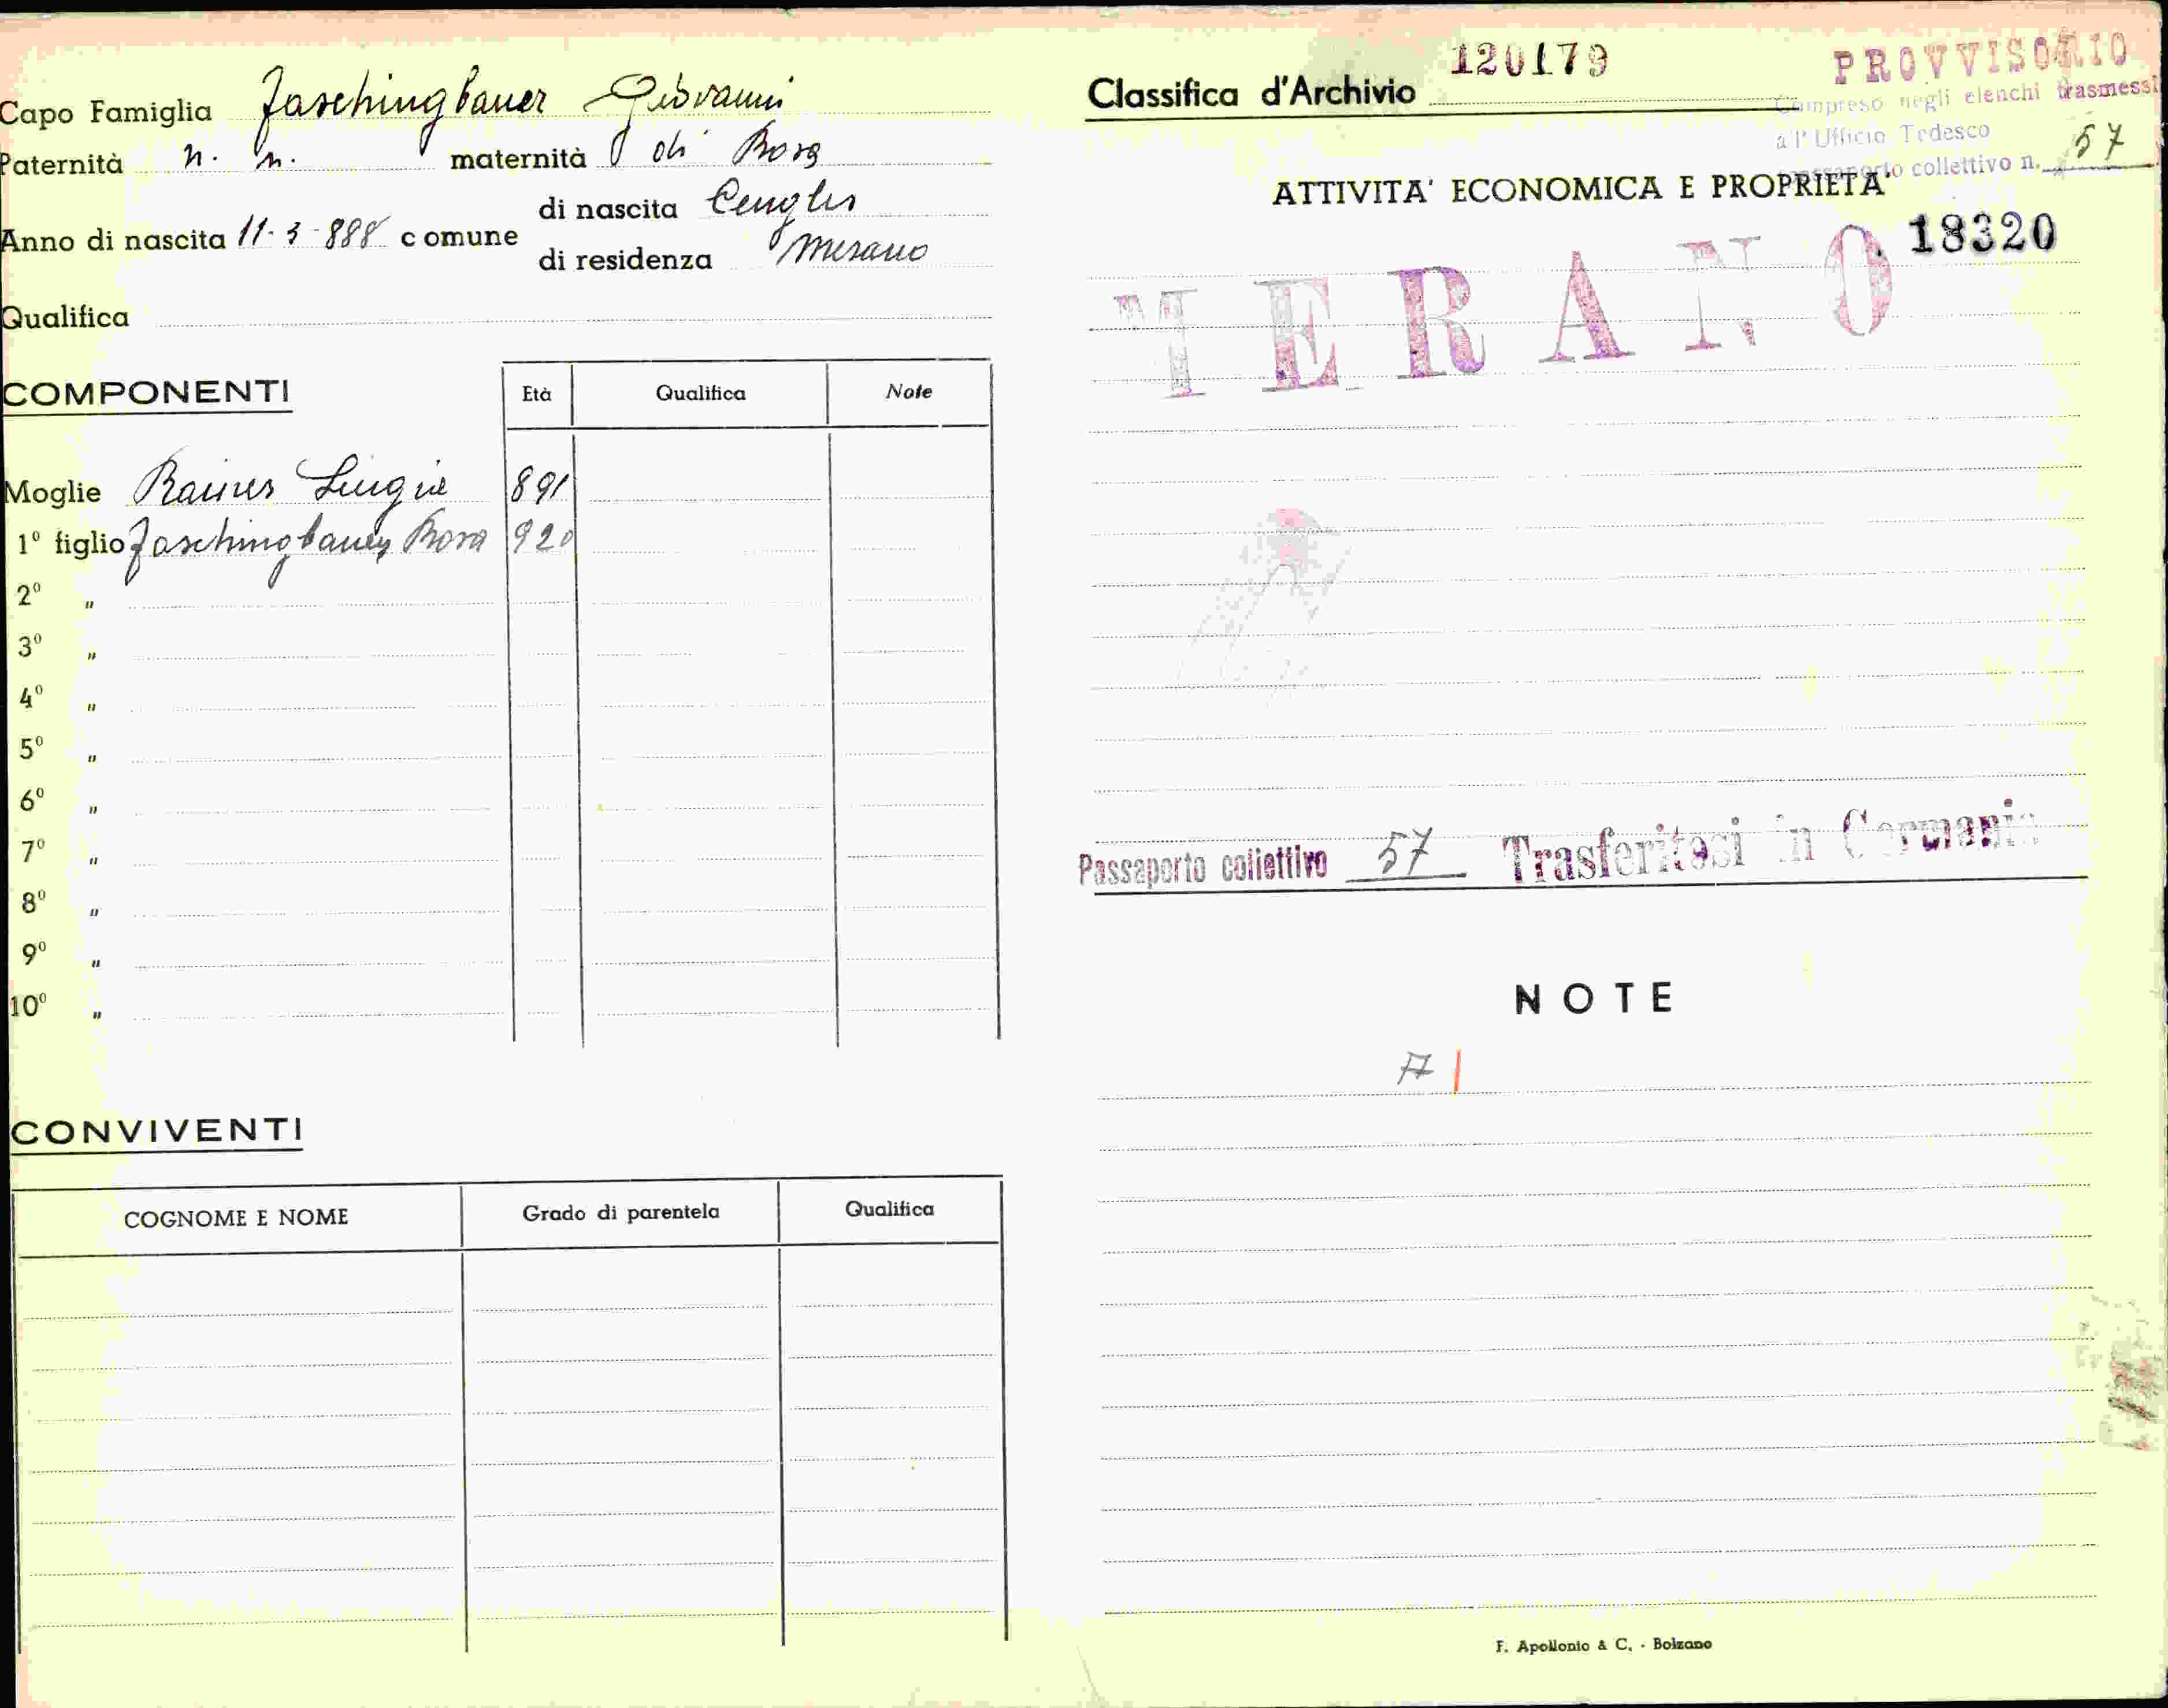 Capo Famiglia Faschingbauer Giovanni
Paternità n. n. maternità di Rosa
di nascita Cengles
Anno di nascita 11-3-888 comune
di residenza Merano
Qualifica
COMPONENTI
Età Qualifica Note
Moglie Rainer Luigia 891
1° figlio Faschingbauer Rosa 920
2° "
3° "
4° "
5° "
6° "
7° "
8° "
9° "
10° "
CONVIVENTI
COGNOME E NOME Grado di parentela Qualifica
Classifica d'Archivio 120179
PROVVISORIO
Compreso negli elenchi trasmessi
a l' Ufficio Tedesco
passaporto collettivo n. 57
ATTIVITA' ECONOMICA E PROPRIETA'
18320
MERANO
Passaporto collettivo 57 Trasferitosi in Germania
NOTE
F. Apollonio & C. - Bolzano